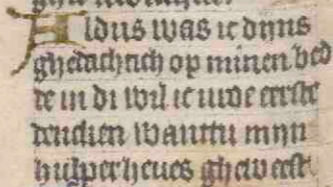 Aldus was ic dijns
ghedachtich op minen bed
de in di wil ic inde eerste
dencken wanttu mijn
hulper heves gheweest